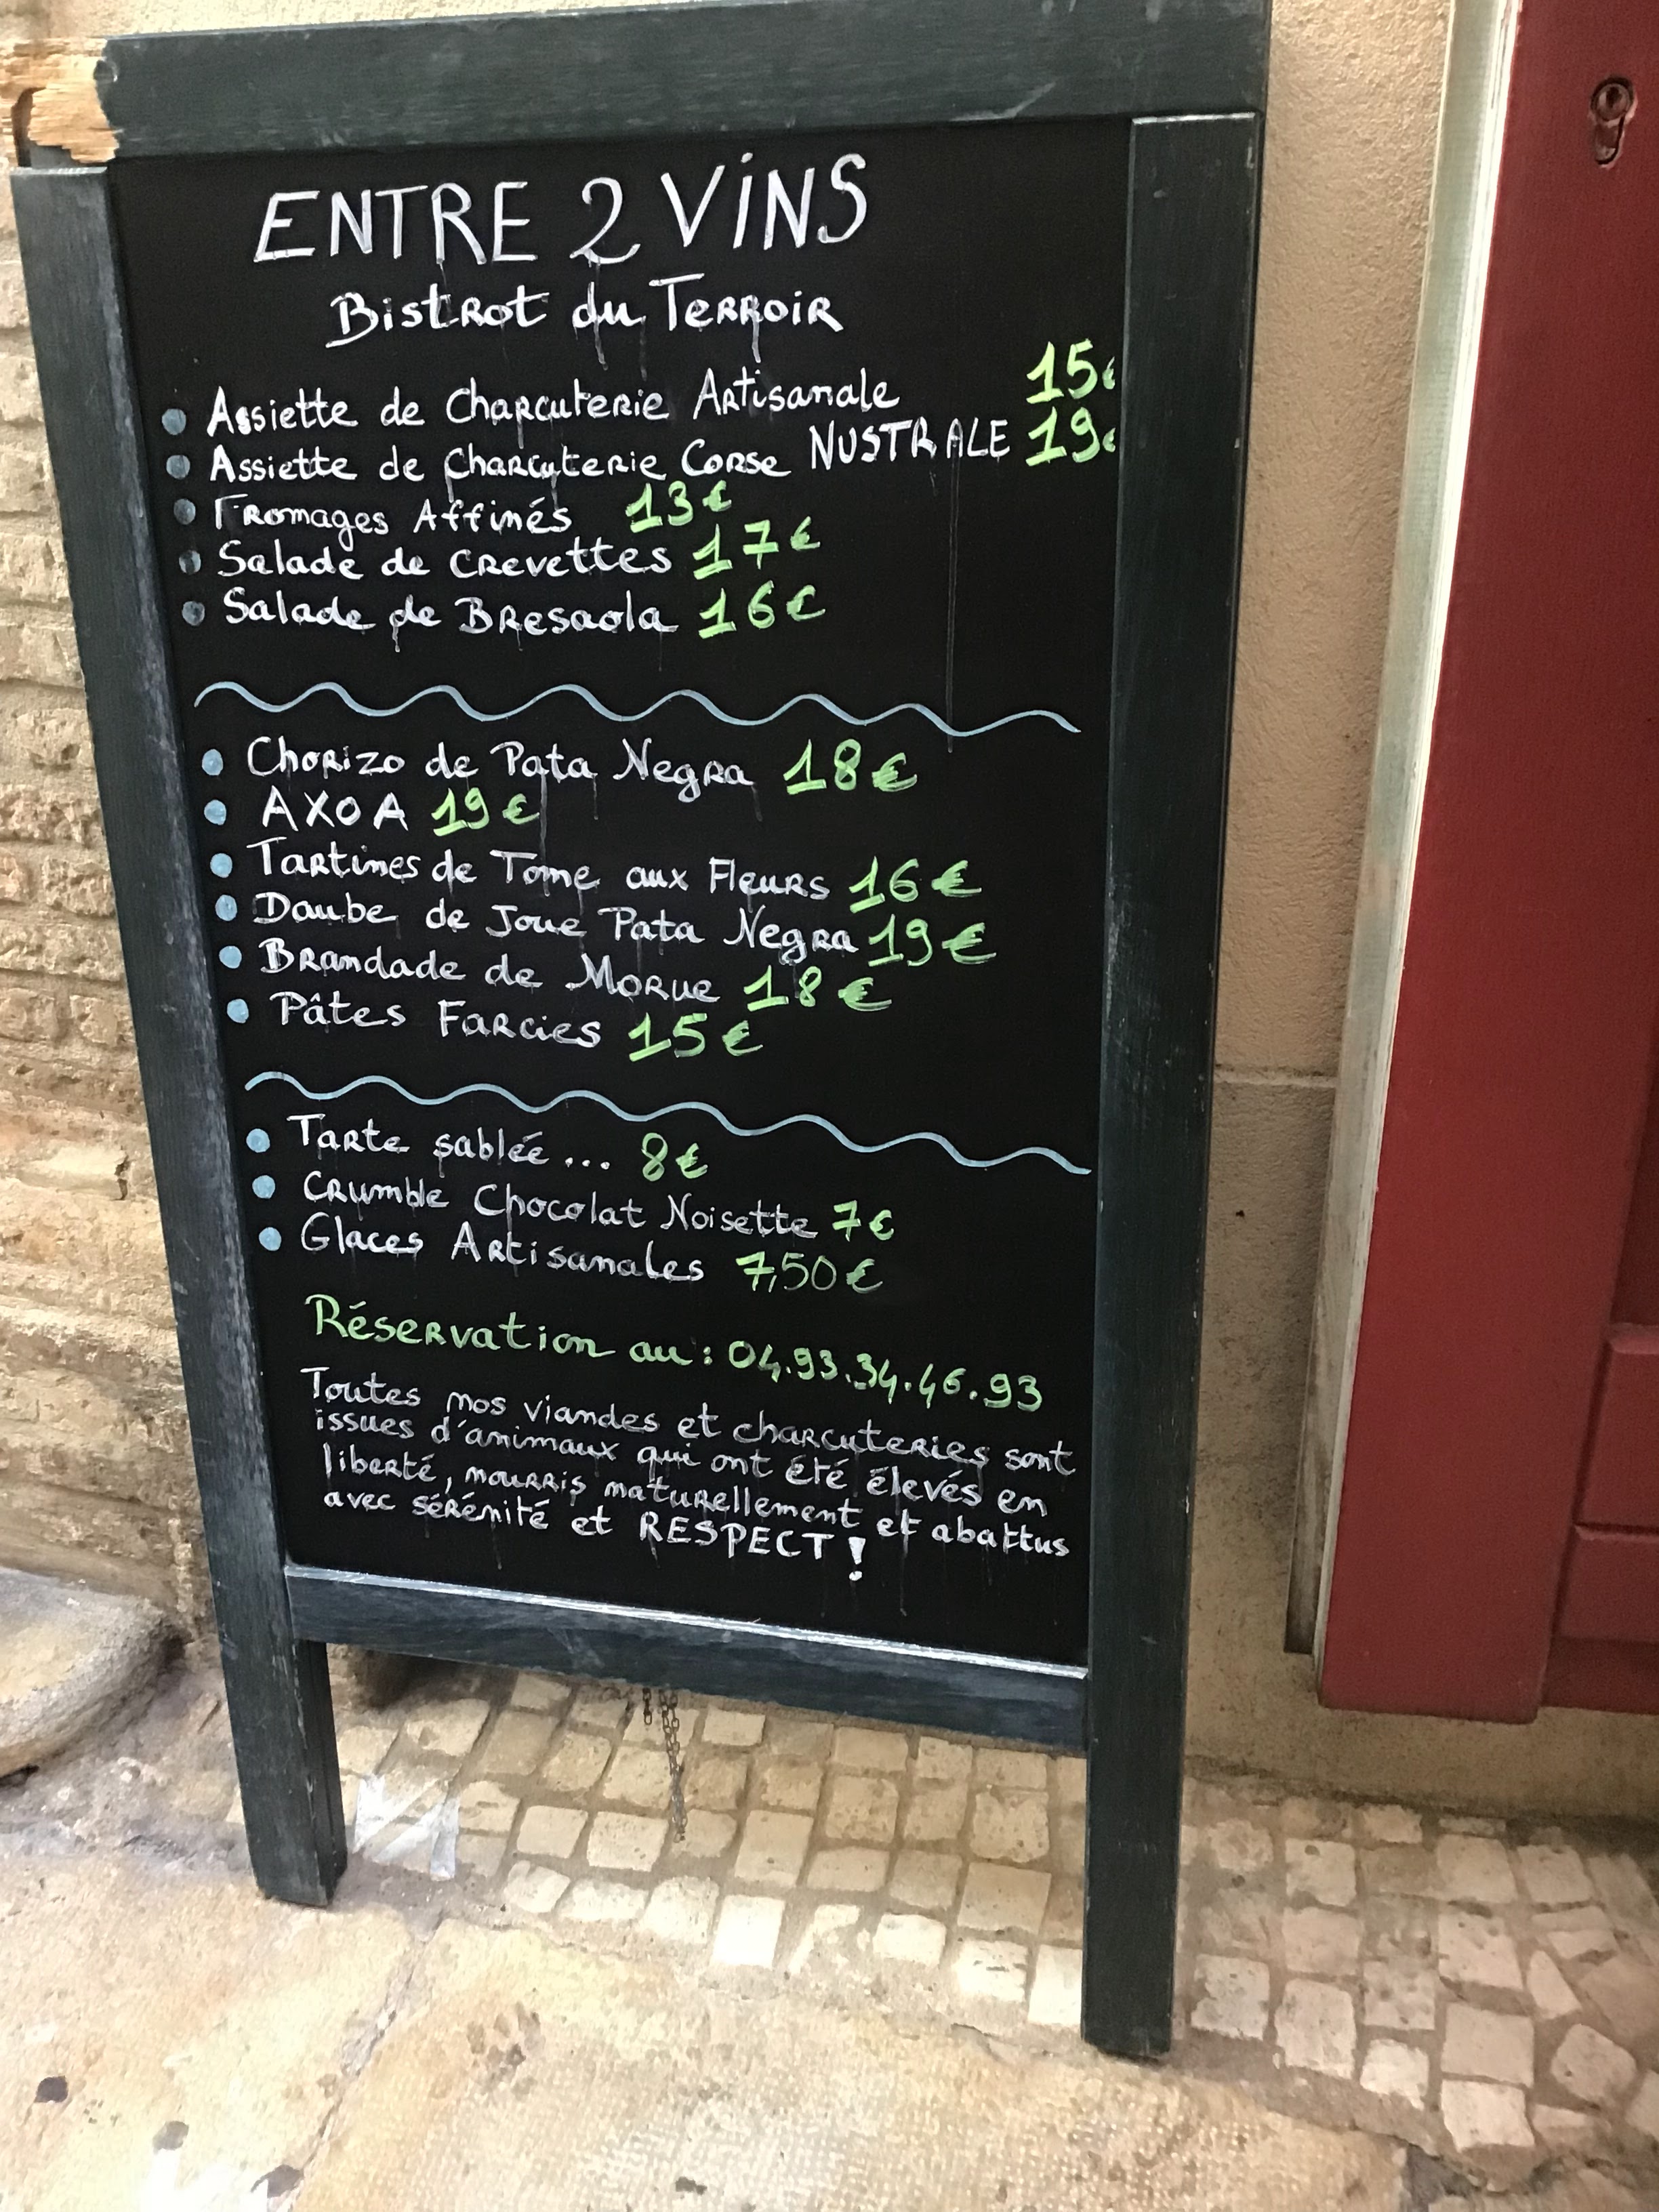 ENTRE 2 VINS
Bistrot du Terroir
Assiette de Charcuterie Artisanale 15€
Assiette de Charcuterie Corse NUSTRALE 19€
Fromages Affinés 13€
Salade de Crevettes 17€
Salade de Bresaola 16€
Chorizo de Pata Negra 18€
AXOA 19€
Tartines de Tome aux Fleurs 16€
Daube de Joue Pata Negra 19€
Brandade de Morue 18€
Pâtes Farcies 15€
Tarte sablée... 8€
Crumble Chocolat Noisette 7€
Glaces Artisanales 7,50€
Réservation au : 04.93.34.46.93
Toutes nos viandes et charcuteries sont
issues d'animaux qui ont été élevés en
liberté, nourris naturellement et abattus
avec sérénité et RESPECT !